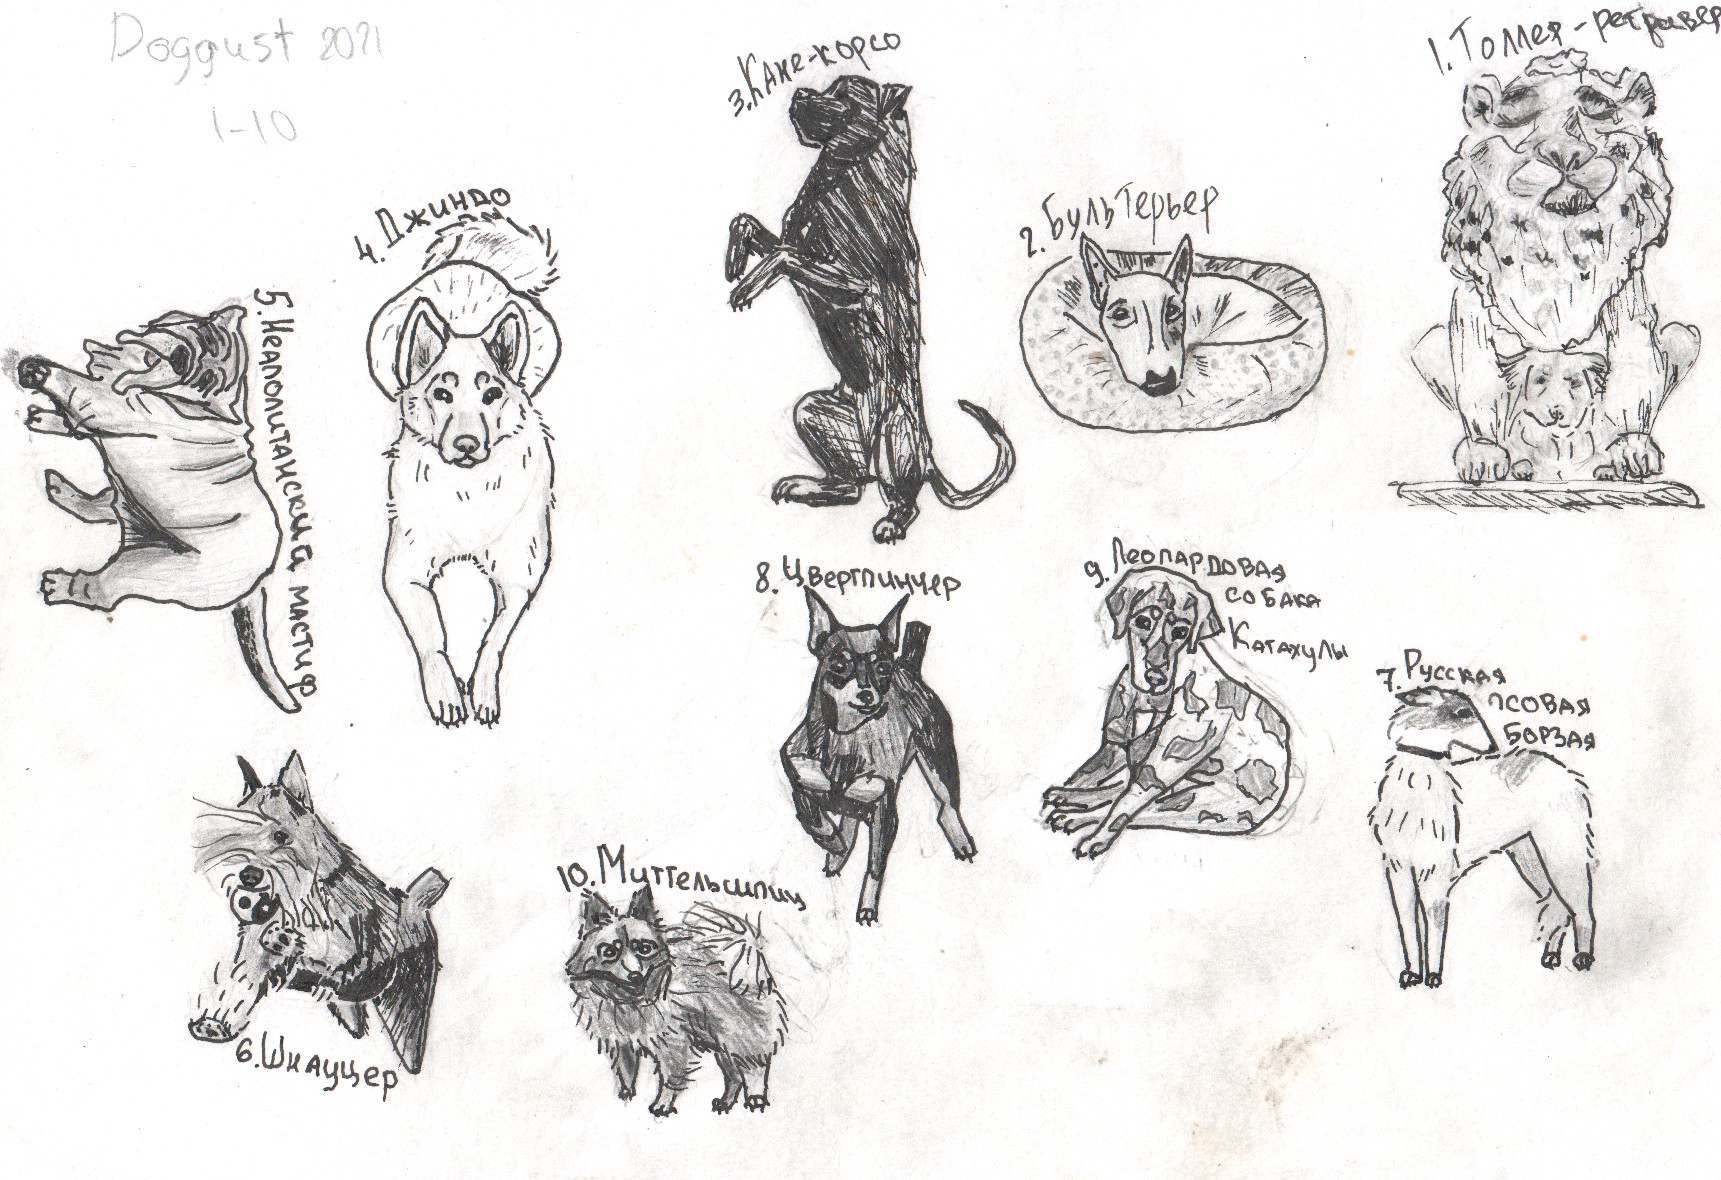 Doggust 2021
1-10
1. Толлер-ретривер
2. Бультерьер
3. Кане-корсо
4. Джиндо
5. Неаполитанский мастиф
6. Шнауцер
7. Русская
псовая
борзая
8. Цвергпинчер
9. Леопардовая
собака
Катахулы
10. Миттельшпиц